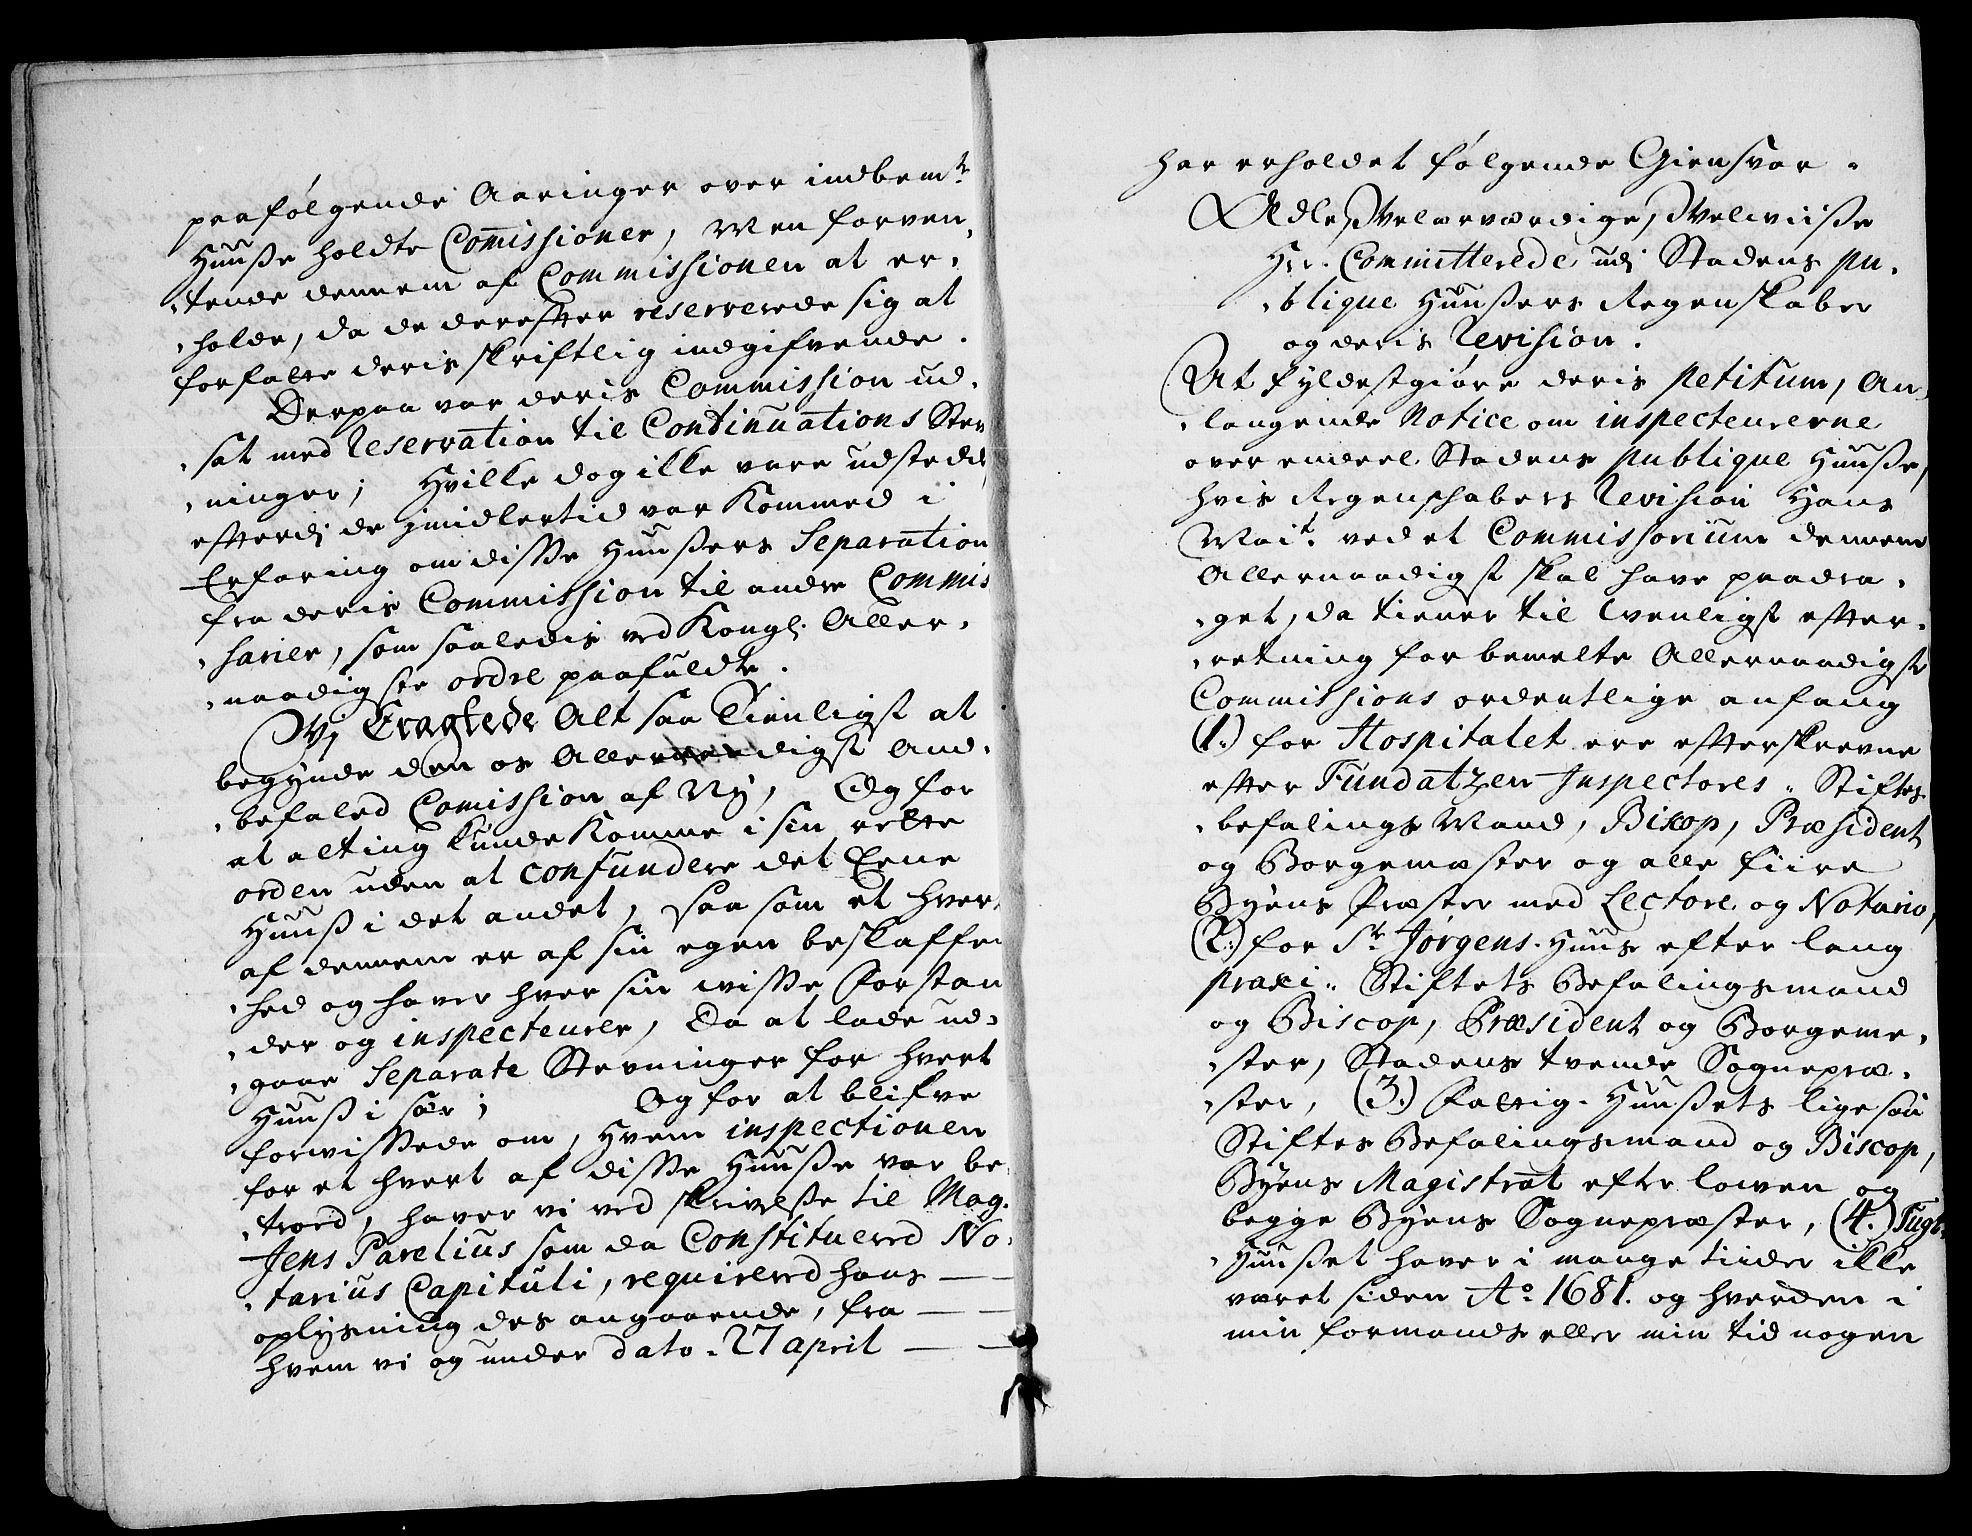 paafølgende Aaringer over indbem.te
Huuße holdte Com̄issioner, Men forven¬
tende dennem af Commissionen at er¬
holde, da de derefter reserverede sig at
forfatte deris skriftlig indgifvende.
Derpaa var deris Commission ud¬
sat med Reservation til Continuations Stev
ninger; Hvilke dog ikke vare udstedd,
efterdj de jmidlertid var kommed i
Erfaring om disse Huußers Separation
fra deris Commission til andre Commis
sarier, som saaledis ved Kongl: Aller¬
naadigste ordre paafuldte.
Wj Eragtede Alt saa Tienligst at
begynde den os Allernaadigst An¬
befaled Comission af Ny, Og for
at alting kunde komme i sin rette
orden uden at confundere det Eene
Huuß i det andet, saa som et hver
af dennem er af sin egen beskaffen
hed og haver hver sin wisse Forstan
der og inspecteurer, Da at lade ud¬
gaae Separate Stevninger for hvert
Huuß i sær; Og for at blifve
forwissede om, Hvem inspectionen
for et hvert af disse Huuße var be¬
troed, haver vi ved skrivelße til Mag.
Jens Parelius som da Constituered No¬
tarius Capituli, requirered hans
oplysning des angaaende, fra
hvem vi og under dato. 27 april
har erholdet følgende Giensvar.
Ædle, Velærværdige, Velwiiße
Hrr. Committerede udj Stadens pu¬
blique Huußers Regenskaber
og deris Revision.
At fyldestgiøre deris petitum, an
langende Notice om inspecteurerne
over endeel Stadens publique Huuße,
hvis Regenschabers Revision Hans
Mai.t ved et Commissorium dennem
Allernaadigst skal have paadra¬
get, da tiener til Wenligst efter¬
retning for bemelte Allernaadigste
Commissions ordentlige anfang
(1.) for Hospitalet ere efterskrevne
efter Fundatzen Inspectores. Stiftes
befalings Mand, Biscop, Præsident
og Borgemæster og alle fiire
Byens Præster med Lectore og Notario,
(2.) for St. Jørgens. Huus efter lang
praxi. Stiftets Befalingsmand
og Biscop, Præsident og Borgeme¬
ster, Stadens tvende Sognepræ¬
ster, (3.) Fattig. Huußets lige saa
Stiftes Befalingsmand og Biscop,
Byens Magistrat efter lowen og
begge Byens Sognepræster, (4.) Tugt¬
Huußet haver i mange tiider ikke
været siden Ao. 1681. og hverden i
min formands eller min tid nogen